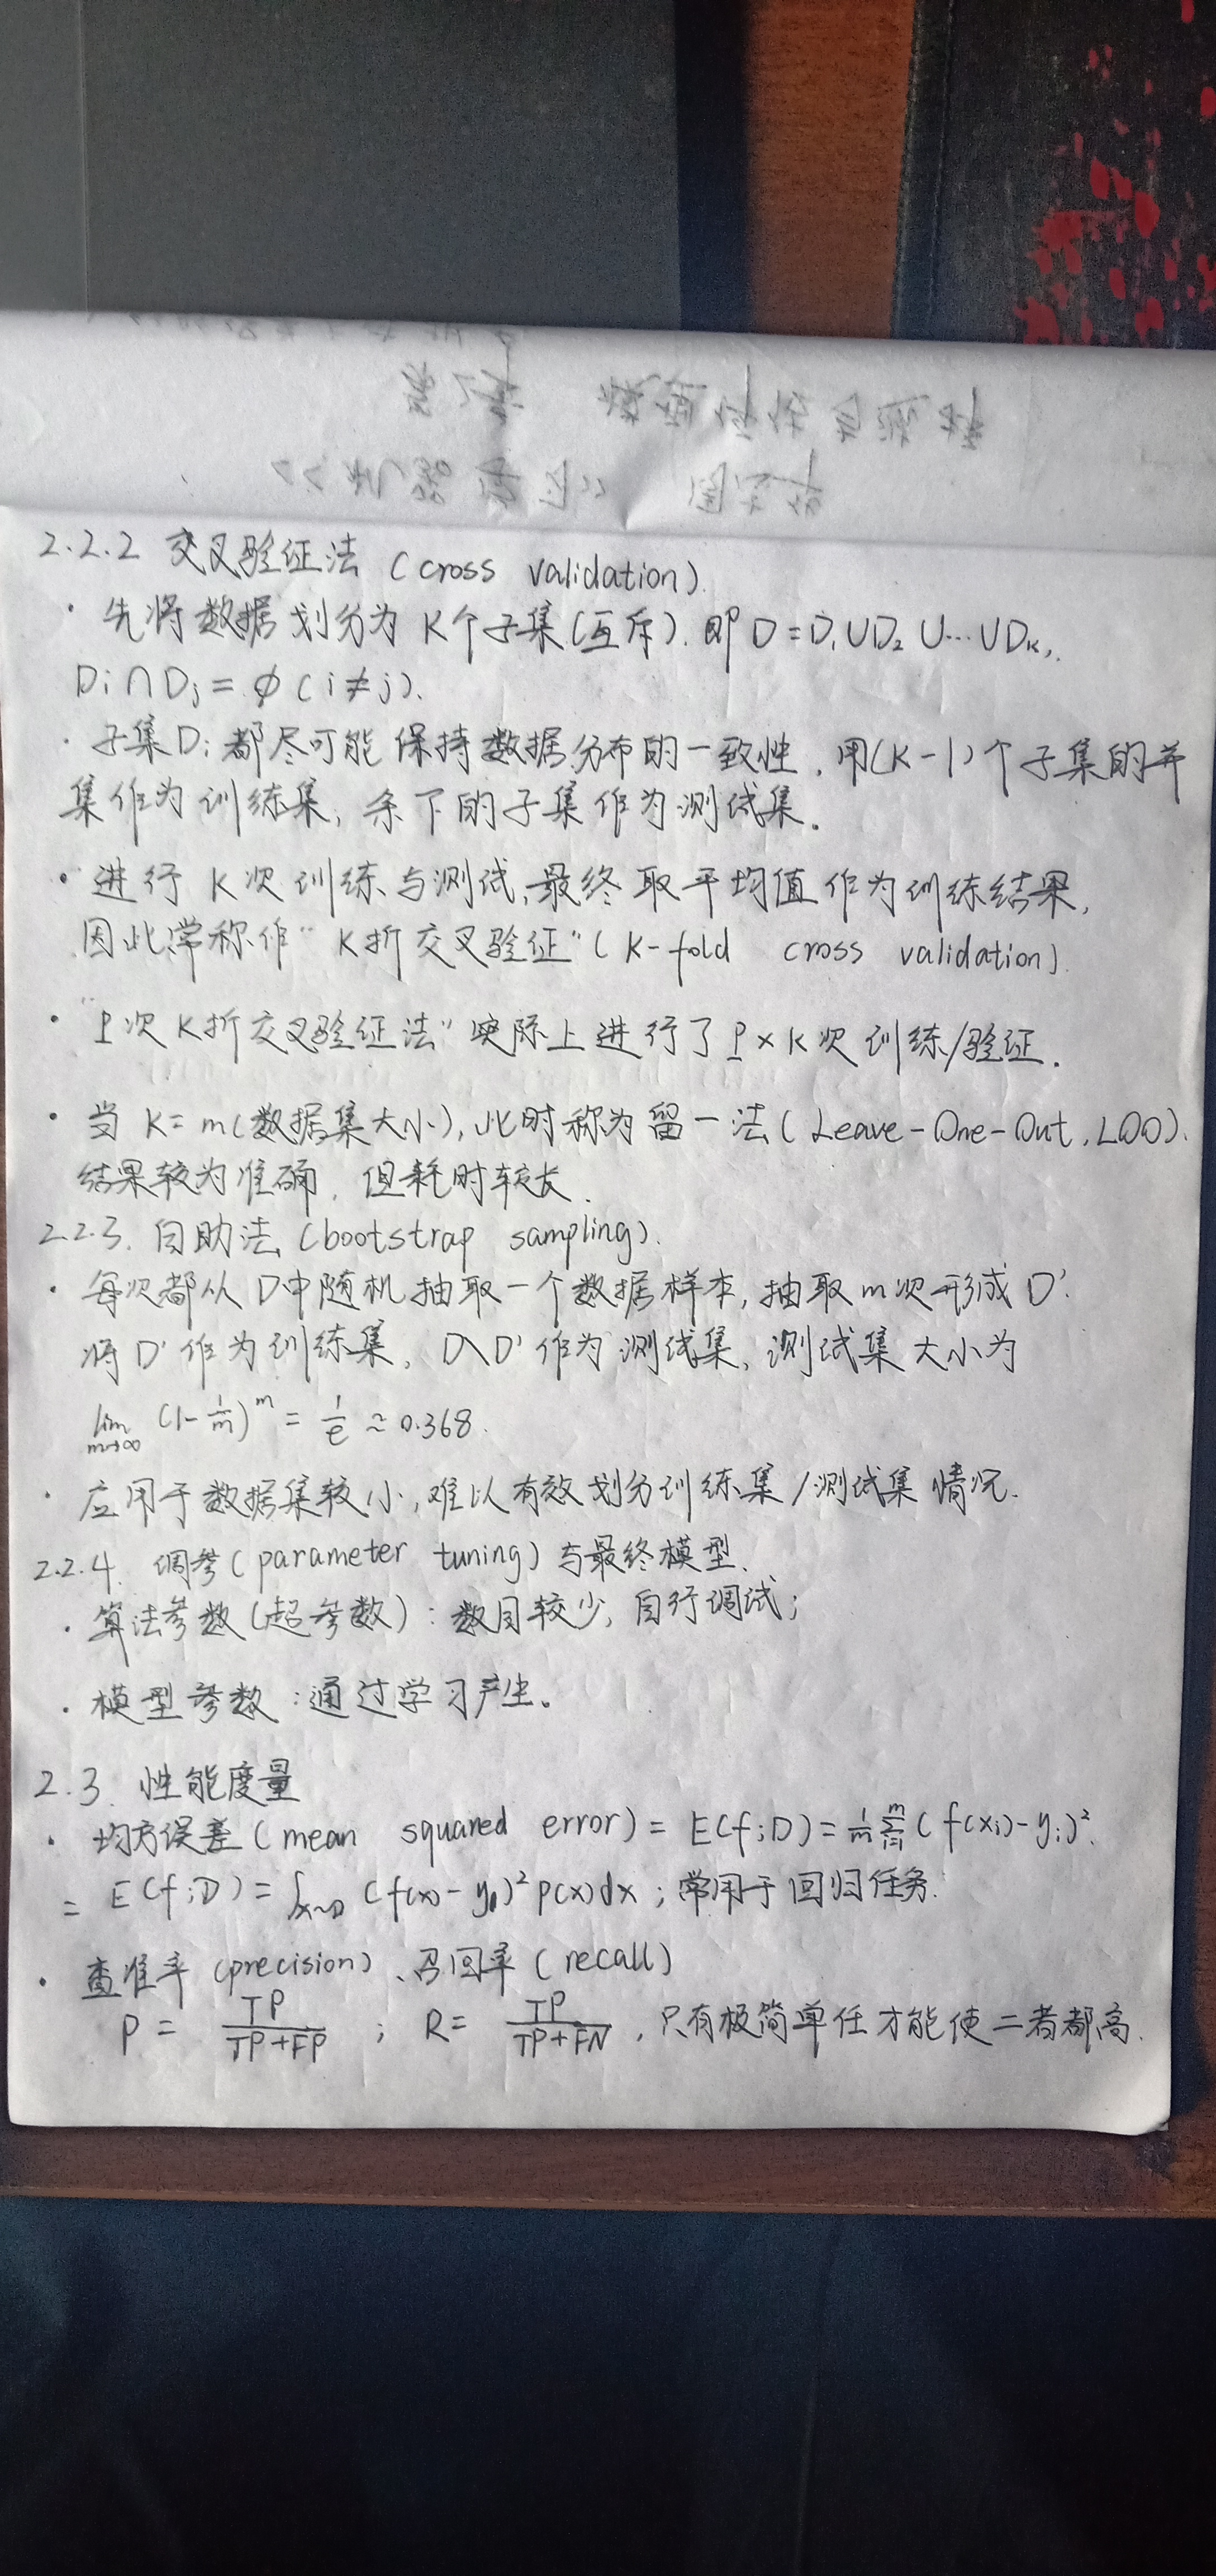 2.2.2 交叉验证法 (cross validation).
· 先将数据划分为 K个子集(互斥). 即 D = D₁∪D₂∪…∪Dₖ,.
Di∩Dj = ∅ (i≠j).
· 子集Di都尽可能保持数据分布的一致性. 用(K-1)个子集的并
集作为训练集, 余下的子集作为测试集.
· 进行K次训练与测试,最终取平均值作为训练结果,
因此常称作“K折交叉验证”(K-fold cross validation).
· “P次K折交叉验证法”实际上进行了P×K次训练/验证.
· 当 K=m(数据集大小), 此时称为留一法(Leave-One-Out, LOO).
结果较为准确, 但耗时较长.
2.2.3. 自助法 (bootstrap sampling).
· 每次都从D中随机抽取一个数据样本, 抽取m次形成D'.
将D'作为训练集, D\D'作为测试集, 测试集大小为
lim m→∞ (1-1/m)^m = 1/e ≈ 0.368.
· 应用于数据集较小,难以有效划分训练集/测试集情况.
2.2.4. 调参(parameter tuning)与最终模型.
· 算法参数(超参数): 数目较少, 自行调试;
· 模型参数:通过学习产生。
2.3. 性能度量
· 均方误差(mean squared error) = E(f;D) = 1/m Σ_{i=1}^{m} (f(xi)-yi)².
= E(f;D) = ∫_{x~D} (f(x)-y)² p(x)dx ; 常用于回归任务.
· 查准率 (precision)、召回率 (recall)
P = TP/(TP+FP) ; R = TP/(TP+FN) , 只有极简单任才能使二者都高.